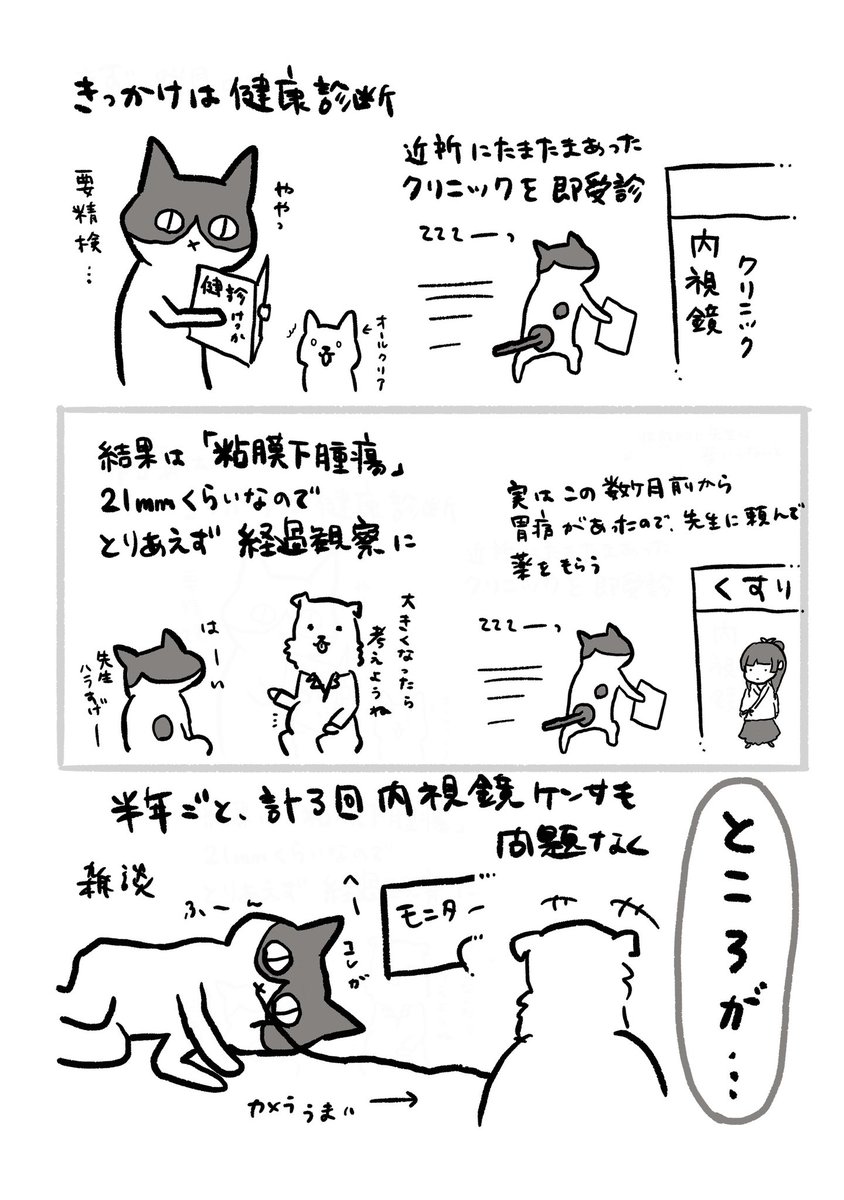 きっかけは健康診断
要精検…
ややっ
健診けっか
オールクリア
近所にたまたまあった
クリニックを即受診
テテテーっ
内視鏡
クリニック
結果は「粘膜下腫瘍」
21mmくらいなので
とりあえず経過観察に
はーい
先生
ハラすげー
大きくなったら
考えようね
実はこの数ヶ月前から
胃病があったので、先生に頼んで
薬をもらう
テテテーっ
くすり
半年ごと、計3回内視鏡ケンサも
問題なく
ところが…
雑談
ふーん
へー
コレが
モニター
カメラうまい